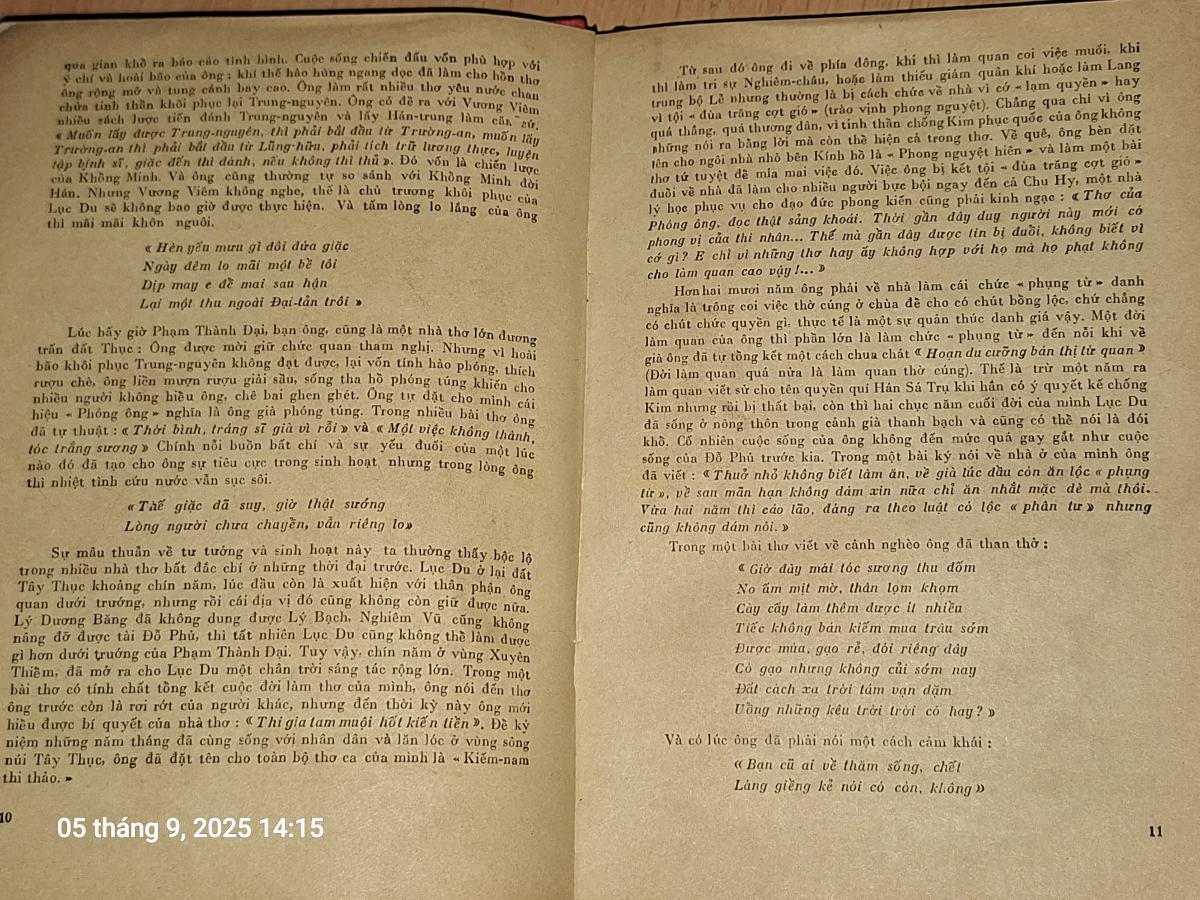 qua gian khổ ra báo cáo tình hình. Cuộc sống chiến đấu vốn phù hợp với
ý chí và hoài bão của ông ; khí thế hào hùng ngang dọc đã làm cho hồn thơ
ông rộng mở và tung cánh bay cao. Ông làm rất nhiều thơ yêu nước chan
chứa tinh thần khôi phục lại Trung-nguyên. Ông có đề ra với Vương Viêm
nhiều sách lược tiến đánh Trung-nguyên và lấy Hán-trung làm căn cứ.
« Muốn lấy được Trung-nguyên, thì phải bắt đầu từ Trường-an, muốn lấy
Trường-an thì phải bắt đầu từ Lũng-hữu, phải tích trữ lương thực, luyện
tập binh sĩ, giặc đến thì đánh, nếu không thì thủ ». Đó vốn là chiến lược
của Khổng Minh. Và ông cũng thường tự so sánh với Khổng Minh đời
Hán. Nhưng Vương Viêm không nghe, thế là chủ trương khôi phục của
Lục Du sẽ không bao giờ được thực hiện. Và tấm lòng lo lắng của ông
thì mãi mãi khôn nguôi.
« Hèn yếu mưu gì đối đứa giặc
Ngày đêm lo mãi một bề tôi
Dịp may e để mai sau hận
Lại một thu ngoài Đại-tản trôi »
Lúc bấy giờ Phạm Thành Đại, bạn ông, cũng là một nhà thơ lớn đương
trấn đất Thục : Ông được mời giữ chức quan tham nghị. Nhưng vì hoài
bão khôi phục Trung-nguyên không đạt được, lại vốn tính hào phóng, thích
rượu chè, ông liền mượn rượu giải sầu, sống tha hồ phóng túng khiến cho
nhiều người không hiểu ông, chê bai ghen ghét. Ông tự đặt cho mình cái
hiệu « Phóng ông » nghĩa là ông già phóng túng. Trong nhiều bài thơ ông
đã tự thuật : « Thời bình, tráng sĩ già vì rỗi » và « Một việc không thành,
tóc trắng sương » Chính nỗi buồn bất chí và sự yếu đuối của một lúc
nào đó đã tạo cho ông sự tiêu cực trong sinh hoạt, nhưng trong lòng ông
thì nhiệt tình cứu nước vẫn sục sôi.
« Thế giặc đã suy, giờ thật sướng
Lòng người chưa chuyển, vẫn riêng lo»
Sự mâu thuẫn về tư tưởng và sinh hoạt này ta thường thấy bộc lộ
trong nhiều nhà thơ bất đắc chí ở những thời đại trước. Lục Du ở lại đất
Tây Thục khoảng chín năm, lúc đầu còn là xuất hiện với thân phận ông
quan dưới trướng, nhưng rồi cái địa vị đó cũng không còn giữ được nữa.
Lý Dương Băng đã không dung được Lý Bạch, Nghiêm Vũ cũng không
nâng đỡ được tài Đỗ Phủ, thì tất nhiên Lục Du cũng không thể làm được
gì hơn dưới trướng của Phạm Thành Đại. Tuy vậy, chín năm ở vùng Xuyên
Thiểm, đã mở ra cho Lục Du một chân trời sáng tác rộng lớn. Trong một
bài thơ có tính chất tổng kết cuộc đời làm thơ của mình, ông nói đến thơ
ông trước còn là rơi rớt của người khác, nhưng đến thời kỳ này ông mới
hiểu được bí quyết của nhà thơ : « Thi gia tam muội hốt kiến tiền ». Để kỷ
niệm những năm tháng đã cùng sống với nhân dân và lăn lóc ở vùng sông
núi Tây Thục, ông đã đặt tên cho toàn bộ thơ ca của mình là « Kiếm-nam
thi thảo. »
10
05 tháng 9, 2025 14:15
Từ sau đó ông đi về phía đông, khi thì làm quan coi việc muối, khi
thì làm tri sự Nghiêm-châu, hoặc làm thiếu giám quân khí hoặc làm Lang
trung bộ Lễ nhưng thường là bị cách chức về nhà vì cớ « lạm quyền » hay
vì tội « đùa trăng cợt gió » (trào vịnh phong nguyệt). Chẳng qua chỉ vì ông
quá thẳng, quá thương dân, vì tinh thần chống Kim phục quốc của ông không
những nói ra bằng lời mà còn thể hiện cả trong thơ. Về quê, ông bèn đặt
tên cho ngôi nhà nhỏ bên Kính hồ là « Phong nguyệt hiên » và làm một bài
thơ tứ tuyệt để mỉa mai việc đó. Việc ông bị kết tội « đùa trăng cợt gió »
đuổi về nhà đã làm cho nhiều người bực bội ngay đến cả Chu Hy, một nhà
lý học phục vụ cho đạo đức phong kiến cũng phải kinh ngạc : « Thơ của
Phóng ông, đọc thật sảng khoái. Thời gần đây duy người này mới có
phong vị của thi nhân... Thế mà gần đây được tin bị đuổi, không biết vì
cớ gì ? E chỉ vì những thơ hay ấy không hợp với họ mà họ phạt không
cho làm quan cao vậy !... »
Hơn hai mươi năm ông phải về nhà làm cái chức « phụng từ » danh
nghĩa là trông coi việc thờ cúng ở chùa để cho có chút bổng lộc, chứ chẳng
có chút chức quyền gì, thực tế là một sự quản thúc danh giá vậy. Một đời
làm quan của ông thì phần lớn là làm chức « phụng từ » đến nỗi khi về
già ông đã tự tổng kết một cách chua chát « Hoạn du cưỡng bán thị từ quan »
(Đời làm quan quá nửa là làm quan thờ cúng). Thế là trừ một năm ra
làm quan viết sử cho tên quyền quí Hàn Sá Trụ khi hắn có ý quyết kế chống
Kim nhưng rồi bị thất bại, còn thì hai chục năm cuối đời của mình Lục Du
đã sống ở nông thôn trong cảnh già thanh bạch và cũng có thể nói là đói
khổ. Cố nhiên cuộc sống của ông không đến mức quá gay gắt như cuộc
sống của Đỗ Phủ trước kia. Trong một bài ký nói về nhà ở của mình ông
đã viết : « Thuở nhỏ không biết làm ăn, về già lúc đầu còn ăn lộc « phụng
từ », về sau mãn hạn không dám xin nữa chỉ ăn nhất mặc dè mà thôi.
Vừa hai năm thì cáo lão, đáng ra theo luật có lộc « phân tư » nhưng
cũng không dám nói. »
Trong một bài thơ viết về cảnh nghèo ông đã than thở :
« Giờ đây mái tóc sương thu đốm
No ấm mịt mờ, thân lọm khọm
Cày cấy làm thêm được ít nhiều
Tiếc không bán kiếm mua trâu sớm
Được mùa, gạo rẻ, đói riêng đây
Có gạo nhưng không củi sớm nay
Đất cách xa trời tám vạn dặm
Uổng những kêu trời trời có hay ? »
Và có lúc ông đã phải nói một cách cảm khái :
« Bạn cũ ai về thăm sống, chết
Láng giềng kẻ nói có còn, không »
11